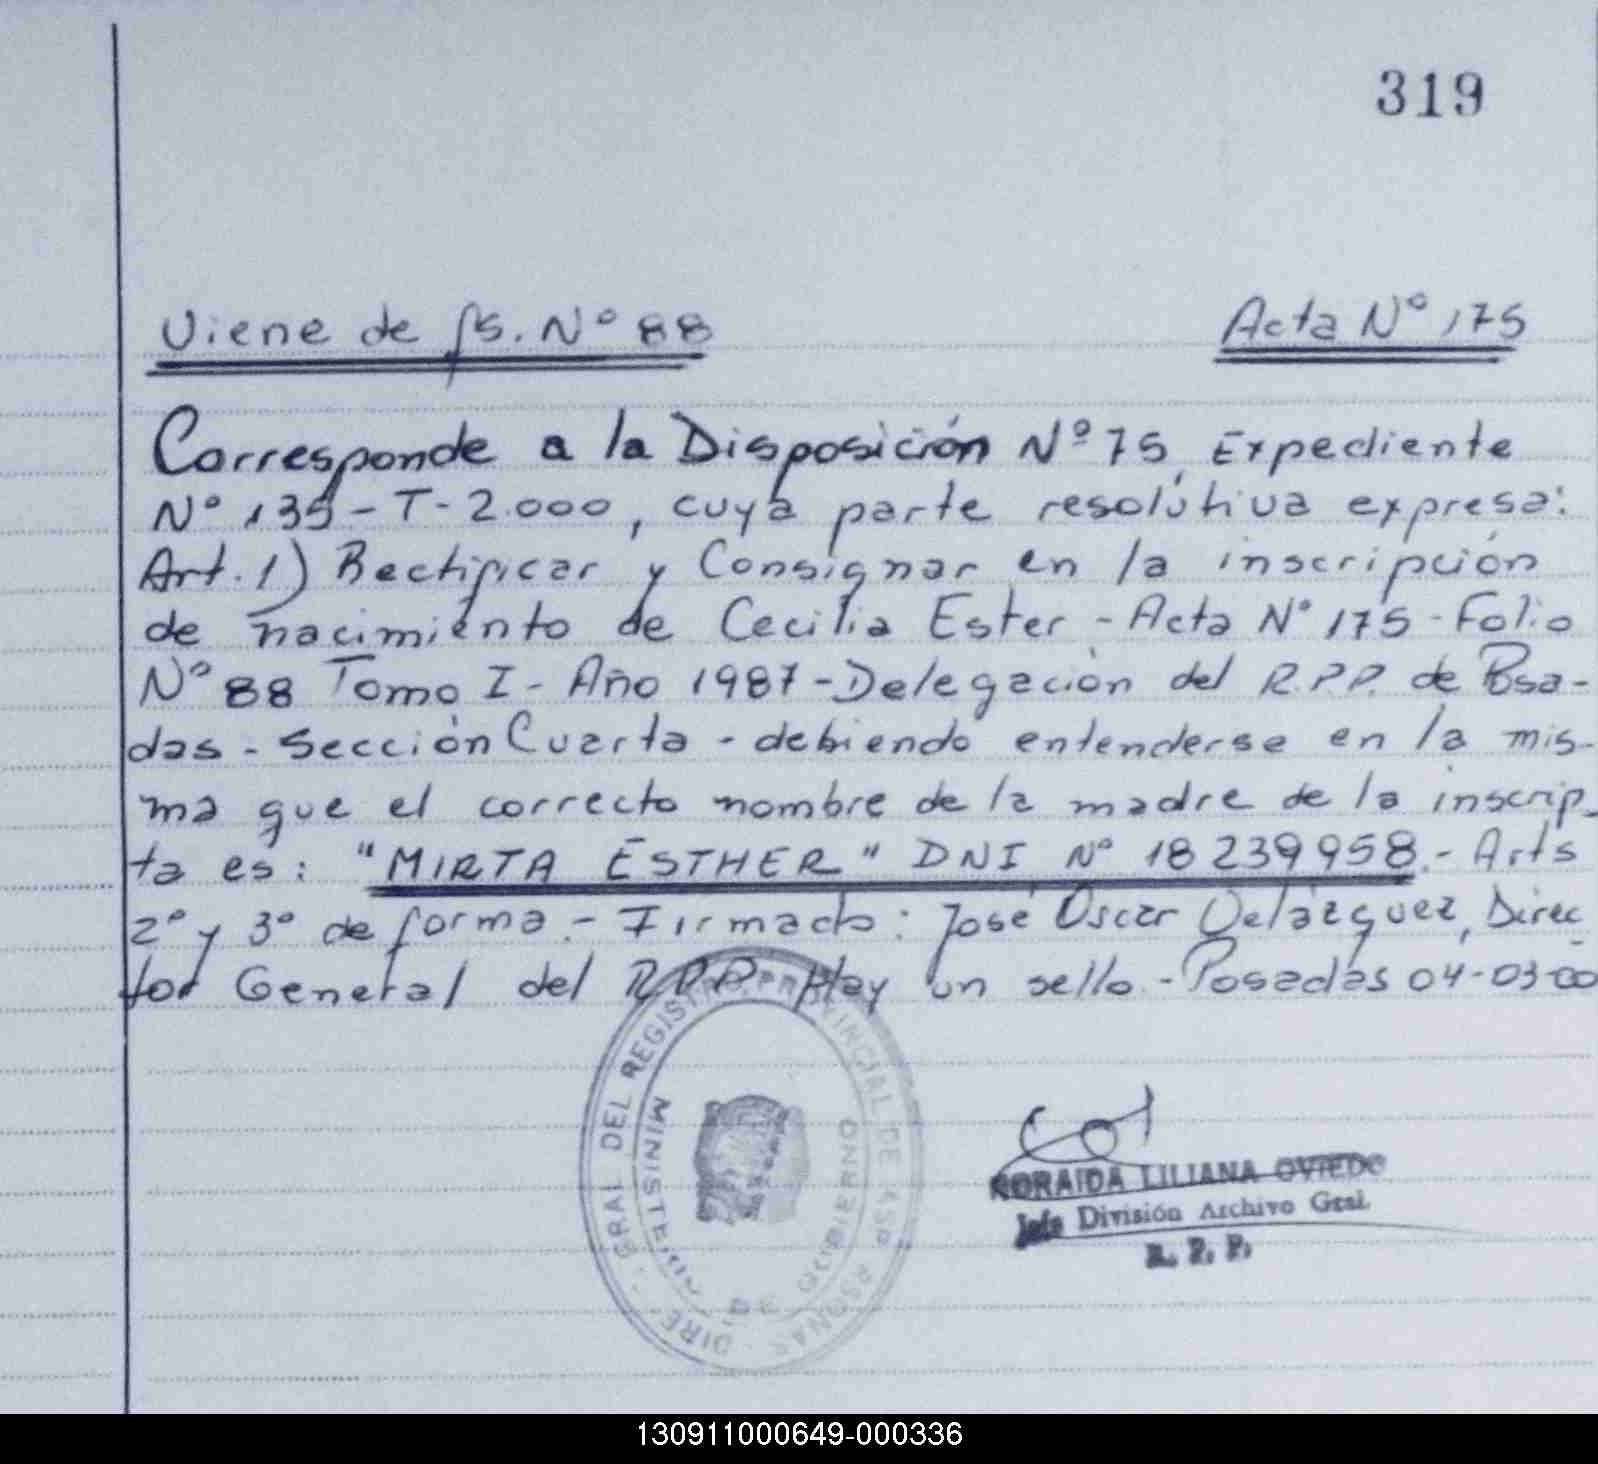 319
Viene de fs. Nº 88
Acta Nº 175
Corresponde a la Disposición Nº 75, Expediente
Nº 135-T-2.000, cuya parte resolutiva expresa:
Art. 1) Rectificar y Consignar en la inscripción
de nacimiento de Cecilia Ester - Acta Nº 175 - Folio
Nº 88 Tomo I - Año 1987 - Delegación del R.P.P. de Posa-
das - Sección Cuarta - debiendo entenderse en la mis-
ma que el correcto nombre de la madre de la inscrip-
ta es: "MIRTA ESTHER" DNI Nº 18239958.- Arts
2º y 3º de forma.- Firmado: José Oscar Velázquez, Direc-
tor General del R.P.P. Hay un sello - Posadas 04-03-00
GRAL DEL REGISTRO PROVINCIAL DE
MINISTERIO DE GOBIERNO
LILIANA OVIEDO
Jefa División Archivo Gral.
R. P. P.
130911000649-000336